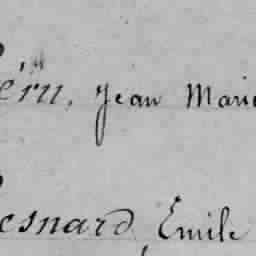 éru, Jean Marie
esnard, Emile